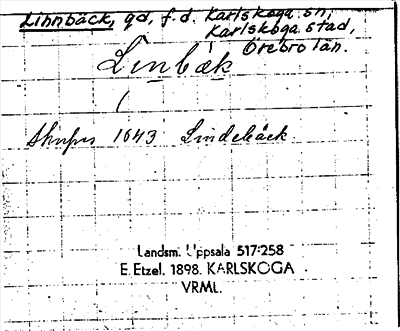 Linnbäck, gd, f.d. Karlskoga sn,
Karlskoga stad,
Örebro län.
Linbæk
(
Skrifves 1643 Lindebäck.
Landsm. Uppsala 517:258
E. Etzel. 1898. KARLSKOGA
VRML.